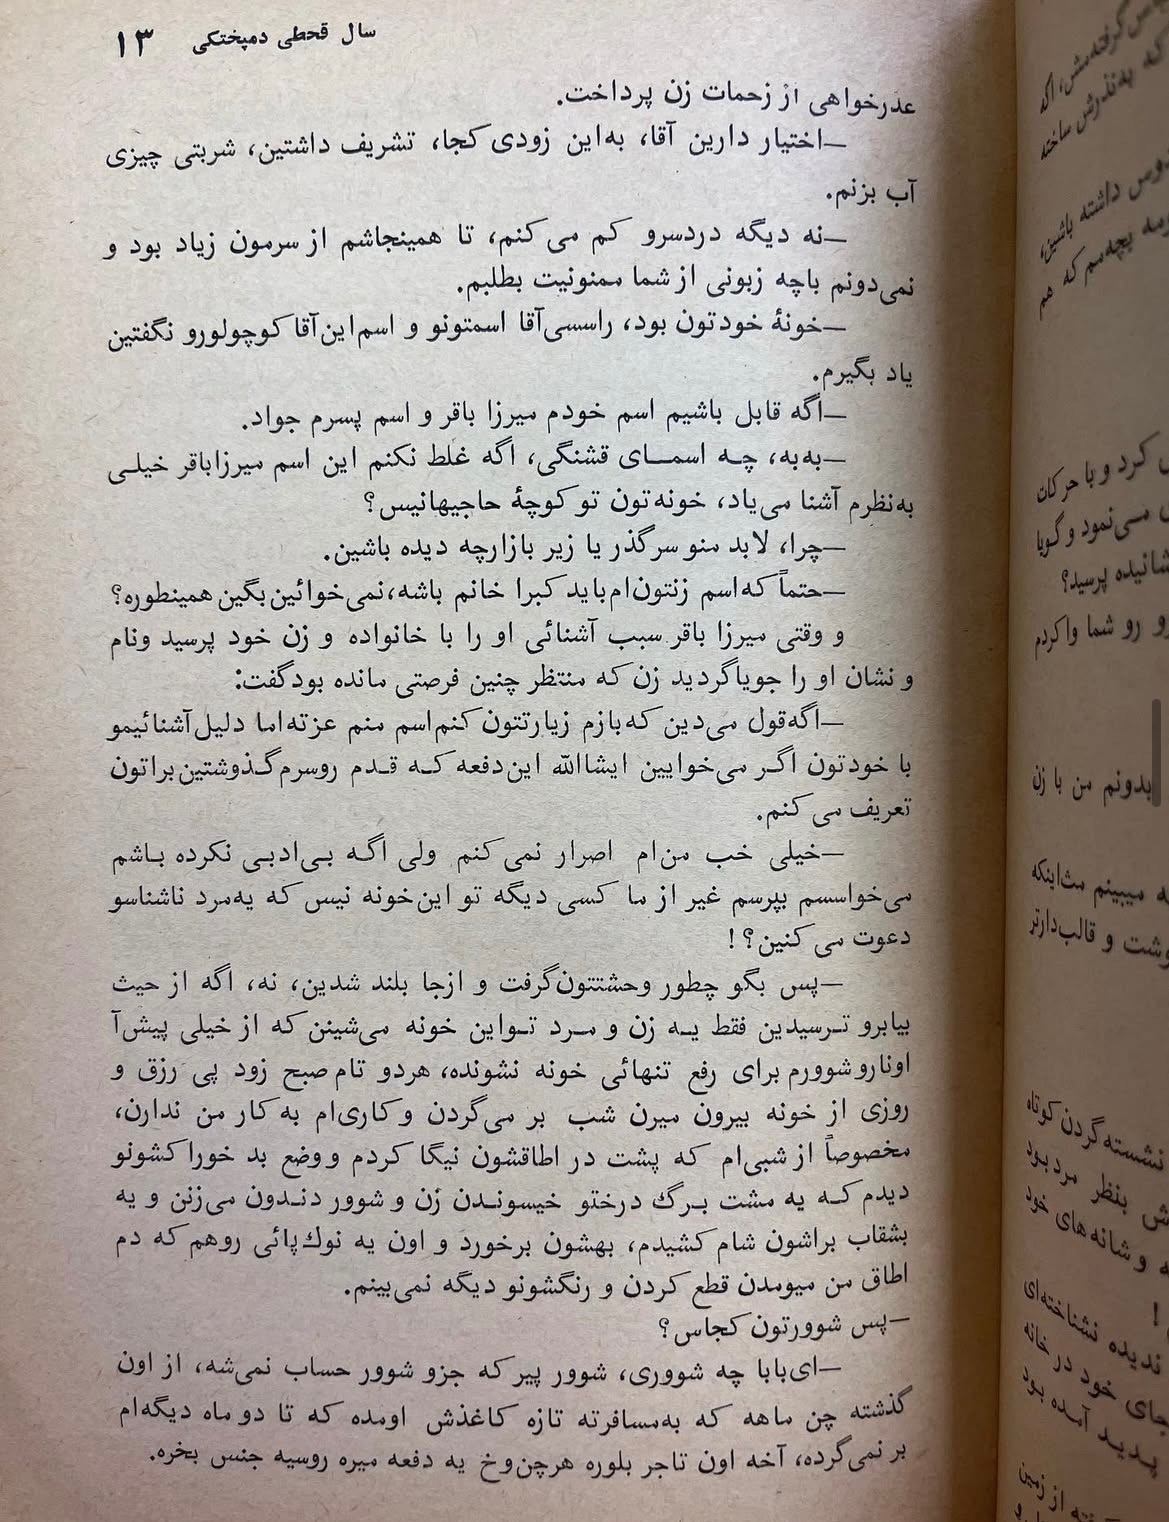 سال قحطی دمپختکی ۱۳
عذرخواهی از زحمات زن پرداخت.
—اختیار دارین آقا، به‌این زودی کجا، تشریف داشتین، شربتی چیزی
آب بزنم.
—نه دیگه دردسرو کم می‌کنم، تا همینجاشم از سرمون زیاد بود و
نمی‌دونم باچه زبونی از شما ممنونیت بطلبم.
—خونهٔ خودتون بود، راسسی‌آقا اسمتونو و اسم‌این‌آقا کوچولورو نگفتین
یاد بگیرم.
—اگه قابل باشیم اسم خودم میرزا باقر و اسم پسرم جواد.
—به‌به، چه اسمای قشنگی، اگه غلط نکنم این اسم میرزاباقر خیلی
به‌نظرم آشنا می‌یاد، خونه‌تون تو کوچهٔ حاجیهانیس؟
—چرا، لابد منو سرگذر یا زیر بازارچه دیده باشین.
—حتماً که‌اسم زنتون‌ام‌باید کبرا خانم باشه،نمی‌خوائین‌بگین همینطوره؟
و وقتی میرزا باقر سبب آشنائی او را با خانواده و زن خود پرسید ونام
و نشان او را جویاگردید زن که منتظر چنین فرصتی مانده بودگفت:
—اگه‌قول می‌دین که‌بازم زیارتتون کنم‌اسم منم عزته‌اما دلیل‌آشنائیمو
با خودتون اگر می‌خوایین ایشاالله این‌دفعه که قدم روسرم‌گذوشتین‌براتون
تعریف می‌کنم.
—خیلی خب من‌ام اصرار نمی‌کنم ولی اگه بی‌ادبی نکرده باشم
می‌خواسسم بپرسم غیر از ما کسی دیگه تو این‌خونه نیس که یه‌مرد ناشناسو
دعوت می‌کنین؟!
—پس بگو چطور وحشتتون‌گرفت و ازجا بلند شدین، نه، اگه از حیث
بیابرو ترسیدین فقط یه زن و مرد تواین خونه می‌شینن که از خیلی پیش‌آ
اونارو شوورم برای رفع تنهائی خونه نشونده، هردو تام صبح زود پی رزق و
روزی از خونه بیرون میرن شب بر می‌گردن و کاری‌ام به کار من ندارن،
مخصوصاً از شبی‌ام که پشت در اطاقشون نیگا کردم و وضع بد خوراکشونو
دیدم که یه مشت برگ درختو خیسوندن زن و شوور دندون می‌زنن و یه
بشقاب براشون شام کشیدم، بهشون برخورد و اون یه نوک‌پائی روهم که دم
اطاق من میومدن قطع کردن و رنگشونو دیگه نمی‌بینم.
—پس شوورتون کجاس؟
—ای‌بابا چه شووری، شوور پیر که جزو شوور حساب نمی‌شه، از اون
گذشته چن ماهه که به‌مسافرته تازه کاغذش اومده که تا دو ماه دیگه‌ام
بر نمی‌گرده، آخه اون تاجر بلوره هرچن‌وخ یه دفعه میره روسیه جنس بخره.
گرفته‌مش، اگه
که به‌نذرش ساخته
داشته باشین،
بچه‌مم که هم
کرد و با حرکات
می‌نمود و گویا
پرسید؟
رو شما واکردم
بدونم من با زن
میبینم مث‌اینکه
و قالب‌دارتر
نشسته گردن‌کوتاه
بنظر مرد بود
و شانه‌های خود
!
ندیده نشناخته‌ای
خود در خانه
پدید آمده بود
از زمین